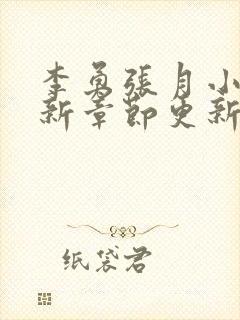 李勇張月小
新章節更新
纸袋君